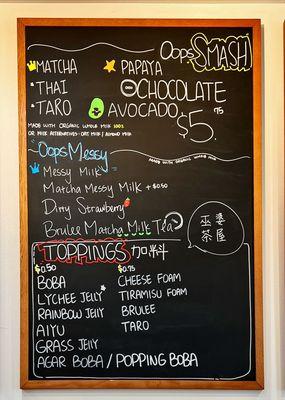 Oops SMASH
MATCHA
PAPAYA
THAI
CHOCLATE
TARO
AVOCADO
$5.75
MADE WITH ORGANIC WHOLE MILK 100%
OR MILK ALTERNATIVES - OAT MILK / ALMOND MILK
Oops Messy
MADE WITH ORGANIC WHOLE MILK
Messy Milk
Matcha Messy Milk + $0.50
Dirty Strawberry
Brulee Matcha Milk Tea
巫婆
茶屋
TOPPINGS 加料
$0.50
BOBA
LYCHEE JELLY
RAINBOW JELLY
AIYU
GRASS JELLY
AGAR BOBA / POPPING BOBA
$0.75
CHEESE FOAM
TIRAMISU FOAM
BRULEE
TARO